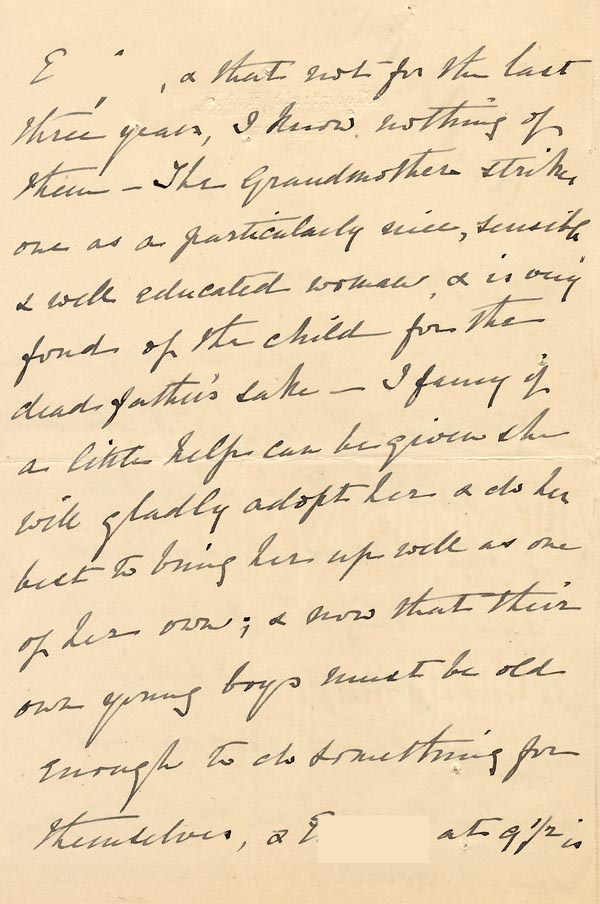 E , & that not for the last
three years, I know nothing of
them – The Grandmother strikes
one as a particularly nice, sensible
& well educated woman, & is very
fond of the child for the
dead father's sake – I fancy if
a little help can be given she
will gladly adopt her & do her
best to bring her up well as one
of her own; & now that their
own young boys must be old
enough to do something for
themselves, & E at 9 1/2 is